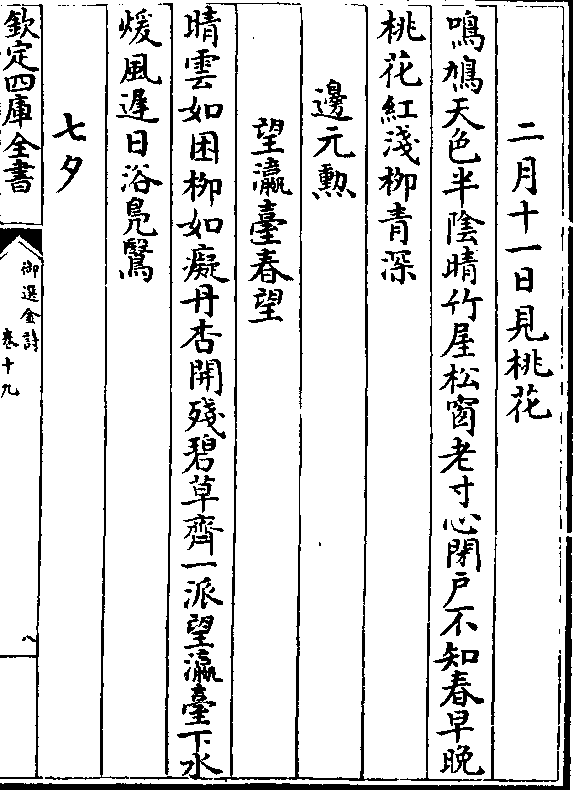 二月十一日見桃花
鳴鳩天色半陰晴竹屋松窗老寸心閉戶不知春早晚
桃花紅淺柳青深
邊元勲
望瀛臺春望
晴雲如困柳如癡丹杏開殘碧草齊一派望瀛臺下水
煖風遲日浴鳧鷖
七夕
欽定四庫全書
御選金詩
卷十九
八